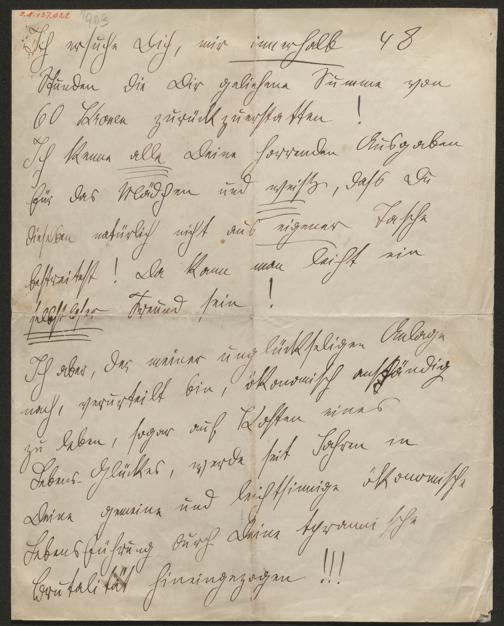 Z.N. 137.022
1903
Ich ersuche Dich, mir innerhalb 48
Stunden die Dir geliehene Summe von
60 Kronen zurückzuerstatten !
Ich kenne alle Deine horrenden Ausgaben
für das Mädchen und weiß, daß Du
dieselben natürlich nicht aus eigener Tasche
bestreitest ! Da kann man leicht ein
selbstloser Freund sein !
Ich aber, der meiner unglückseligen Anlage
nach, verurteilt bin, ökonomisch anständig
zu leben, sogar auf Kosten eines
Lebens-Glückes, werde seit Jahren in
Deine gemeine und leichtsinnige ökonomische
Lebensführung durch Deine tyrannische
Brutalität hineingezogen !!!